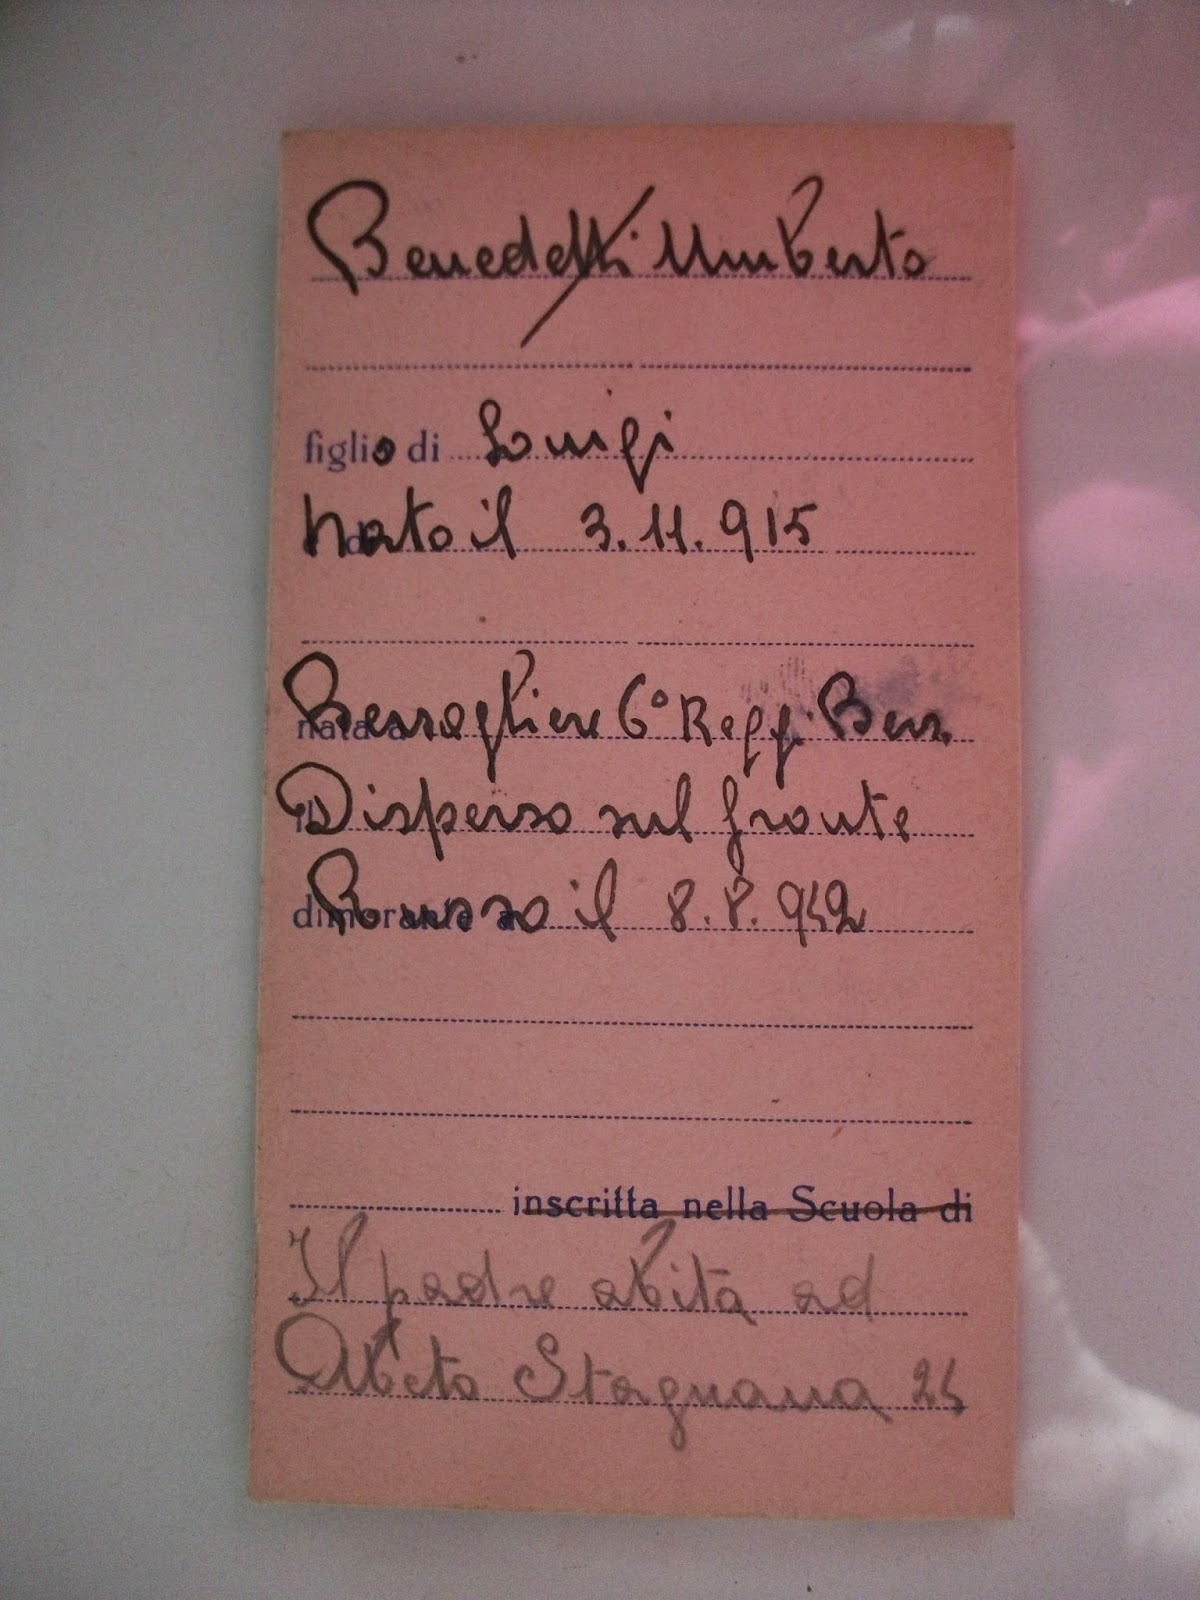 Benedetti Umberto
figlio di Luigi
Nato il 3.11.915
nata a Bersagliere 6° Regg. Bers.
il Disperso sul fronte
dimorante a Russo il 8.8.942
inscritta nella Scuola di
Il padre abita ad
Abeto Stagnana